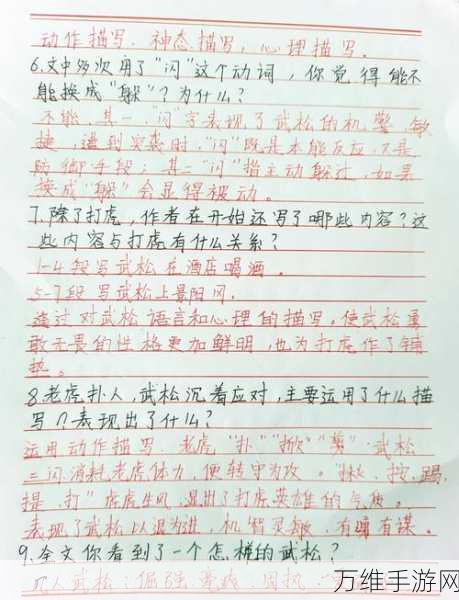 动作描写、神态描写,心理描写。
6.文中多次用了"闪"这个动词,你觉得能不
能换成"躲"?为什么?
不能,其一,"闪"字表现了武松的机警、敏
捷,遇到突袭时,"闪"既是本能反应,又是
防御手段;其二"闪"指主动躲过,如果
换成"躲"会显得被动。
7.除了打虎,作者在开始还写了哪些内容?这
些内容与打虎有什么关系?
1-4段写武松在酒店喝酒。
5-7段写武松上景阳冈。
通过对武松语言和心理的描写,使武松勇
敢无畏的性格更加鲜明,也为打虎作了铺
垫。
8.老虎扑人,武松沉着应对,主要运用了什么描
写?表现出了什么?
运用动作描写,老虎"扑""掀""剪",武松
三闪消耗老虎体力,便转守为攻。"揪、按、踢、
提、打"虎虎生风,显出了打虎英雄的气质。
表现了武松以退为进,机智灵敏,有勇有谋。
9.全文你看到了一个怎样的武松?
凡人武松:倔强
万维手游网